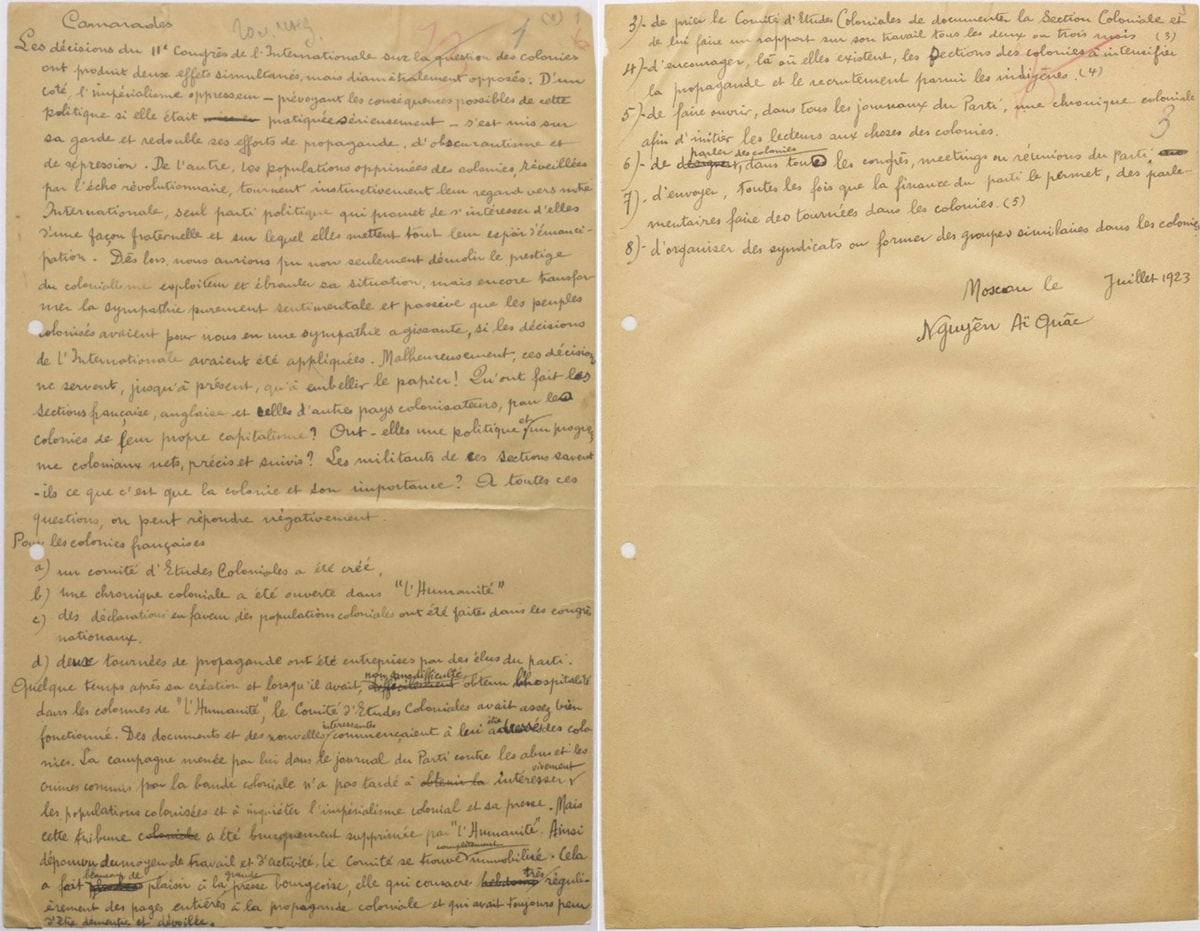 Camarades
(1) 1
1
Les décisions du IIe Congrès de l'Internationale sur la question des colonies
ont produit deux effets simultanés, mais diamétralement opposés : D'un
coté, l'impérialisme oppresseur — prévoyant les conséquences possibles de cette
politique si elle était pratiquée sérieusement — s'est mis sur
sa garde et redouble ses efforts de propagande, d'obscurantisme et
de expression. De l'autre, les populations opprimées des colonies, réveillées
par l'écho révolutionnaire, tournent instinctivement leur regard vers notre
Internationale, seul parti politique qui promet de s'intéresser d'elles
d'une façon fraternelle et sur lequel elles mettent tout leur espoir d'émanci-
pation. Dès lors, nous aurions pu non seulement démolir le prestige
du colonialisme exploiteur et ébranler sa situation, mais encore transfor
mer la sympathie purement sentimentale et passive que les peuples
colonisés avaient pour nous en une sympathie agissante, si les décisions
de l'Internationale avaient été appliquées. Malheureusement, ces décisions
ne servent, jusqu'à présent, qu'à embellir le papier! Qu'ont fait les
sections française, anglaise et celles d'autres pays colonisateurs, pour les
colonies de leur propre capitalisme? Ont-elles une politique et un progra
me coloniaux nets, précis et suivis? Les militants de ces sections savent
-ils ce que c'est que la colonie et son importance? A toutes ces
questions, on peut répondre négativement.
Pour les colonies françaises
a) un comité d'Etudes Coloniales a été créé,
b) une chronique coloniale a été ouverte dans "l'Humanité"
c) des déclarations en faveur des populations coloniales ont été faites dans les congrès
nationaux.
d) deux tournées de propagande ont été entreprises par des élus du parti.
Quelque temps après sa création et lorsqu'il avait, non sans difficulté, obtenu l'hospitalité
dans les colonnes de "l'Humanité", le Comité d'Etudes Coloniales avait assez bien
fonctionné. Des documents et des nouvelles intéressantes commençaient à lui être adressés des colo
nies. La campagne menée par lui dans le journal du Parti contre les abus et les
crimes commis par la bande coloniale n'a pas tardé à obtenir la intéresser vivement
les populations colonisées et à inquiéter l'impérialisme colonial et sa presse. Mais
cette tribune coloniale a été brusquement supprimée par "l'Humanité". Ainsi
dépourvu du moyen de travail et d'activité, le Comité se trouve complètement immobilisé. Cela
a fait beaucoup de plaisir à la grande presse bourgeoise, elle qui consacre très réguli-
èrement des pages entières à la propagande coloniale et qui avait toujours peur
d'être démentie et dévoilée.
3)- de prier le Comité d'Etudes Coloniales de documenter la Section Coloniale et
de lui faire un rapport sur son travail tous les deux ou trois mois (3)
4)- d'encourager, là où elles existent, les Sections des colonies à intensifier
la propagande et le recrutement parmi les indigènes. (4)
5)- de faire ouvrir, dans tous les journaux du Parti, une chronique coloniale
afin d'initier les lecteurs aux choses des colonies.
3
6)- de parler des colonies, dans tous les congrès, meetings ou réunions du Parti.
7)- d'envoyer, toutes les fois que la finance du parti le permet, des parle-
mentaires faire des tournées dans les colonies. (5)
8)- d'organiser des syndicats ou former des groupes similaires dans les colonies
Moscou le Juillet 1923
Nguyên Aï Quâc